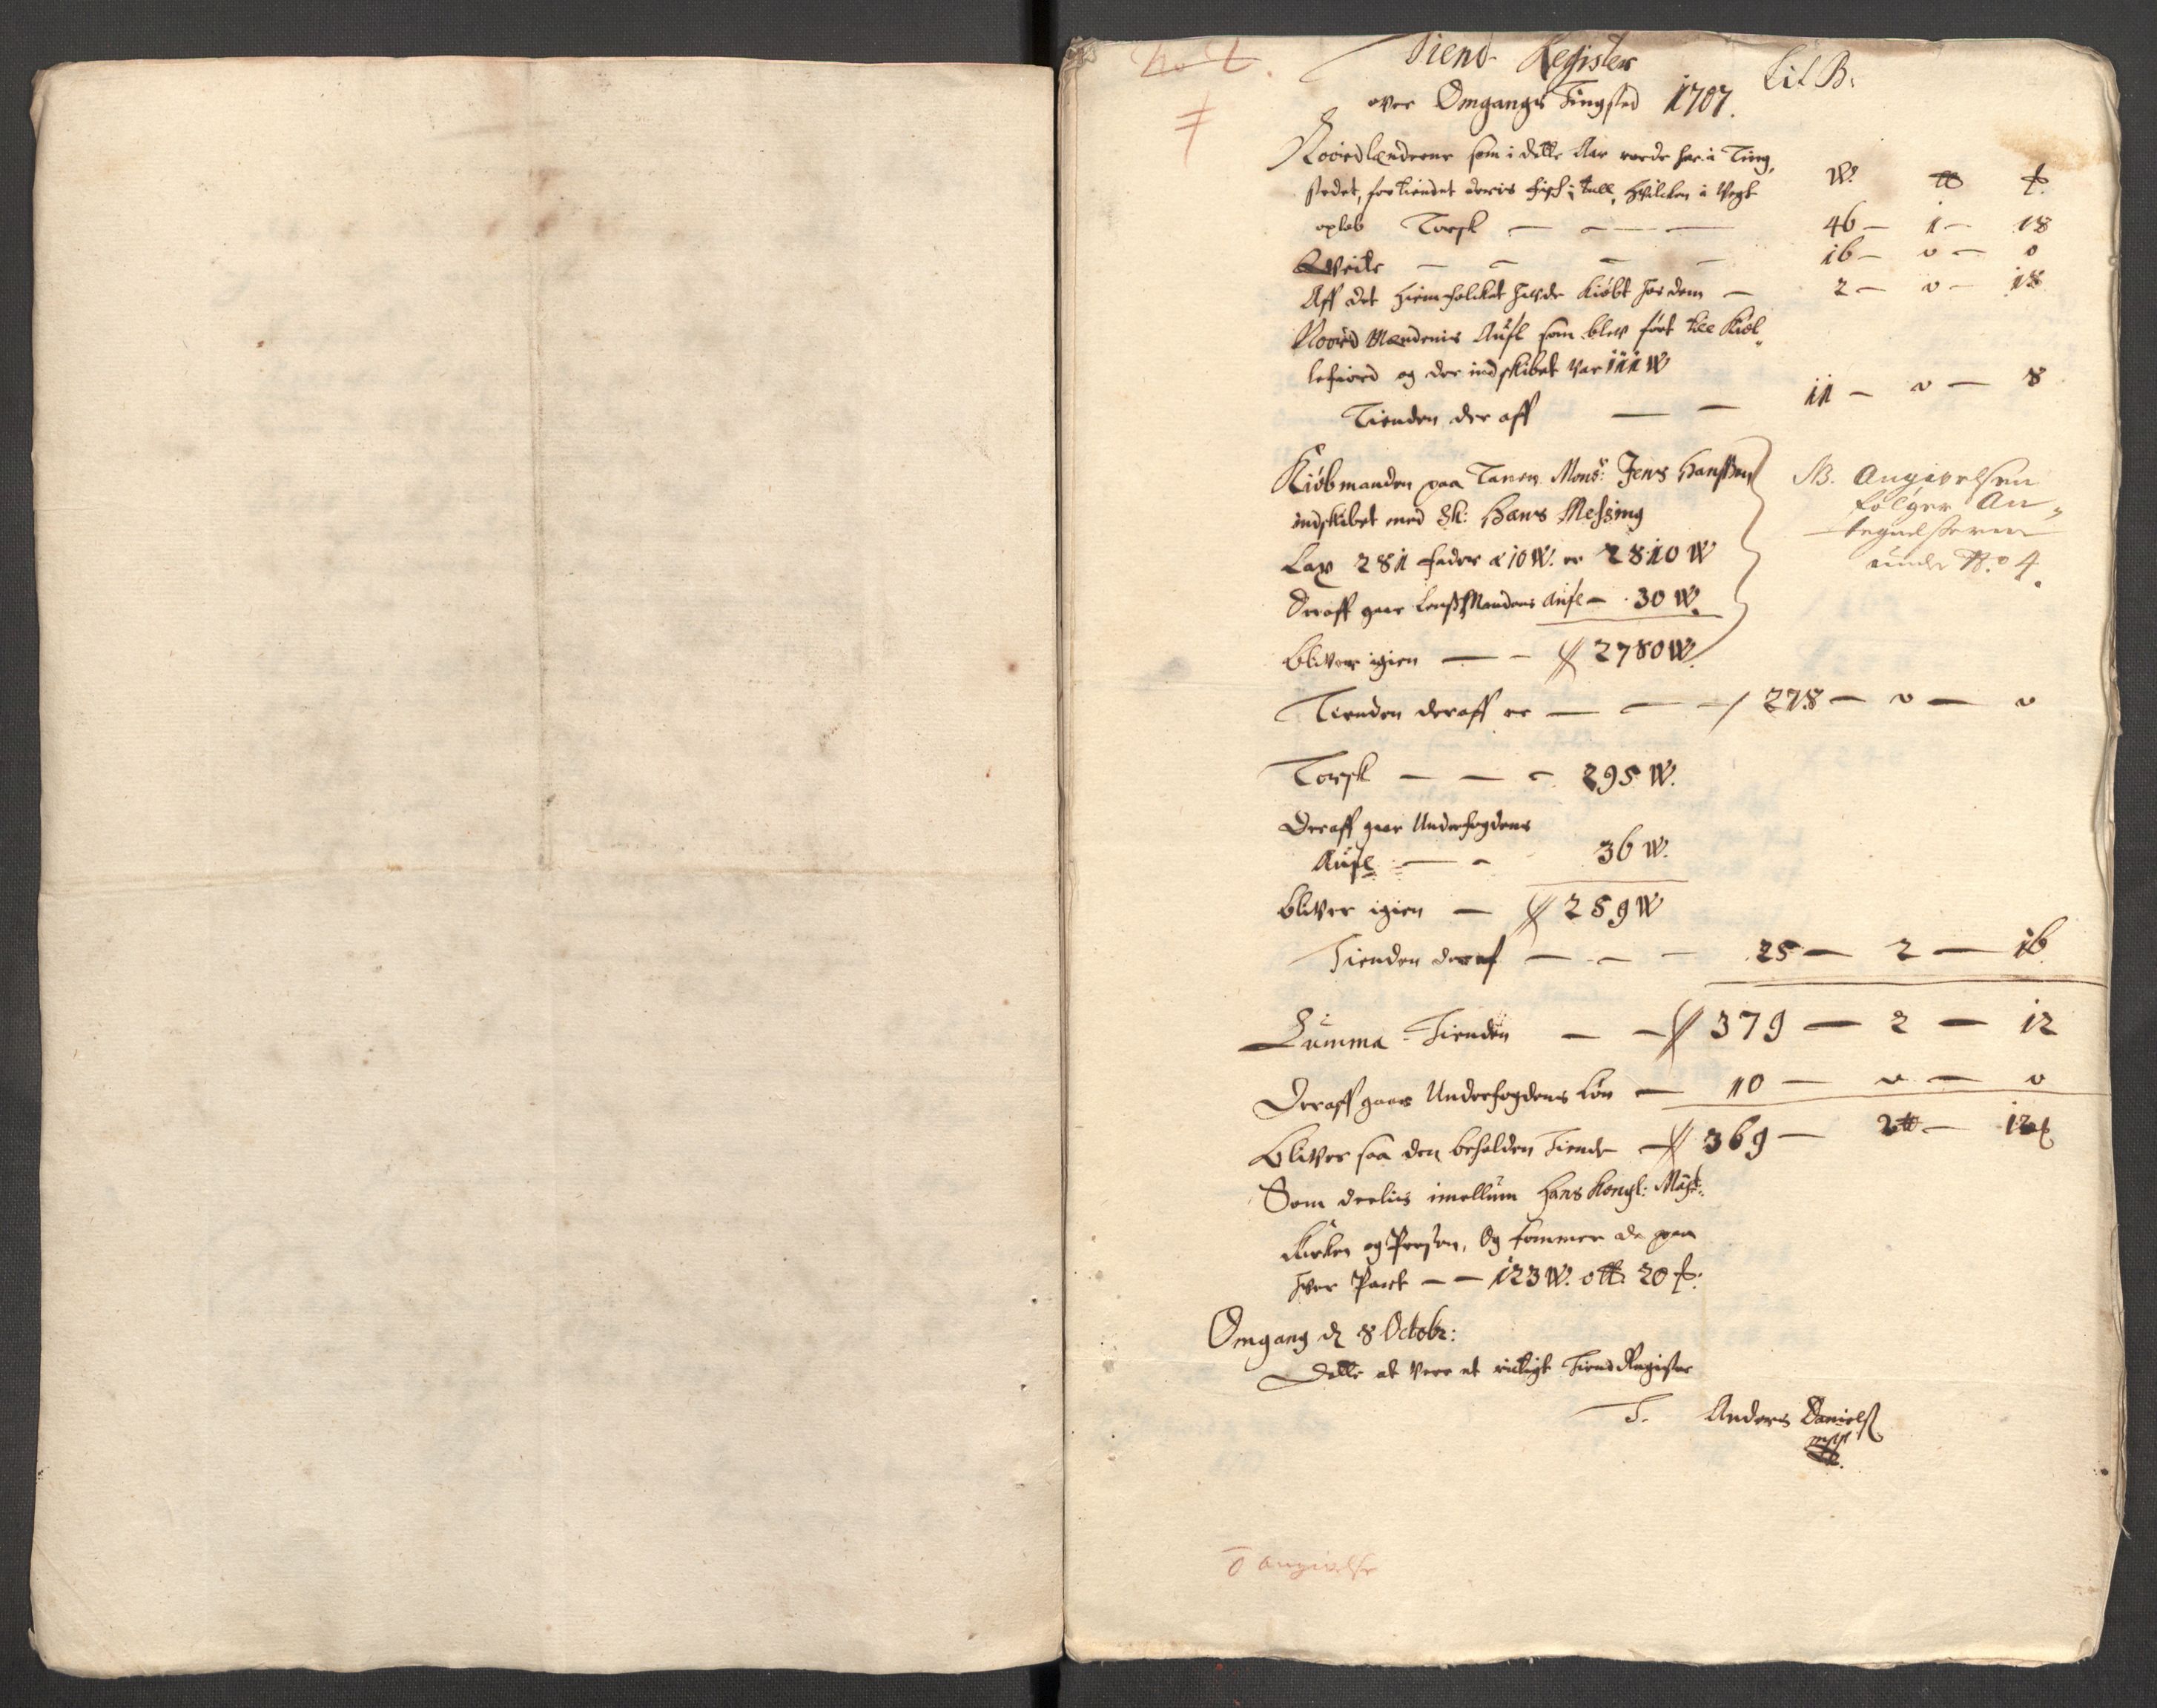 Tiend Register Lit B:
over Omgangs Tingsted 1707.
Noordlænderne som i dette Aar roede her i Ting,
stedet, for tiendet deris fisk i tall, hvilcken i Vegt W. ℔ 
opløb Torsk — — — 46 — 1 — 18
Qveite — — — — 16 — 0 — 0
Aff det hiemfolcket hafde kiøbt for dem — 2 — 0 — 18
Noord Mændenis Aufl som blev ført till Kiøl
lefiord og der indskibet var 111 W
Tienden der aff — — 11 — 0 — 8
Kiøbmanden paa Tanen Mons: Jens Hanssen
indskibet med Sk: Hans Messing
Lax 281 fader a 10 W. er 2810 W
Deraff gaar Lenssmandens Aufl — 30 W.
NB. Angivelsen
følger An,
tegnelserne
under No 4.
bliver igien — — 2780 W.
Tienden deraff er — — — 278 — 0 — 0
Torsk — — — 295 W.
Deraff gaar Underfogdens
Aufl — — 36 W.
bliver igien — 259 W
Tienden deraf — — — 25 — 2 — 16
Summa Tienden — — 379 — 2 — 12
Deraff gaar Underfogdens Løn — 10 — 0 — 0
Bliver saa den beholden Tiende — 369 — 2 ℔ — 12
Som deelis imellum Hans Kongl: Mayt:
Kirken og Presten, Og kommer da paa
hver Part — — 123 W. 0 ℔ 20
Omgang d 8 Octobr:
Dette at være et rictigt Tiend Register
T. Anders Daniels
mpp
angivelse